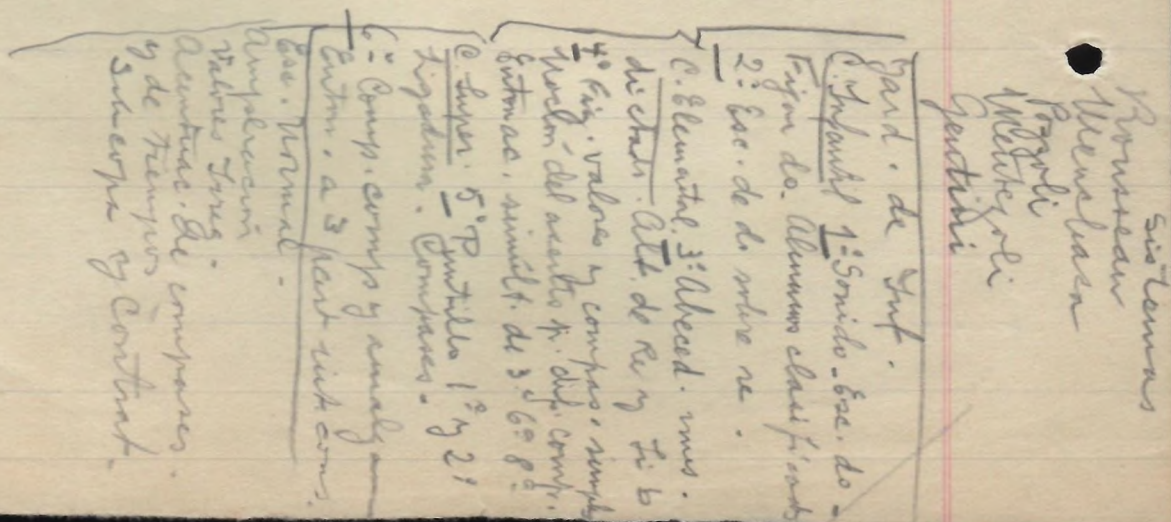 Sistemas
Rousseau
Pozzoli
Gentili
Jard. de Inf.
C. Infantil 1º Sonido. Esc. do -
Fijan do. Alumnos clasificados
2º Esc. de do sobre re.
C. Elemental. 3º Abeced. mus.
dictad. Alt. de Re y Si b
4º Fig. valores y compas. simples
Noción del acento p. dif. comp.
Entonac. simult. de 3ª 6ª 8ª
C. Super. 5º Puntillo 1º y 2º
Ligadura. Compases.
6º Comp. comp y amalg
Enton. a 3 part
Esc. Normal.
Ampliación
Valores Irreg.
Acentuac. de compases.
y de tiempos
Sincopa y Contrat.